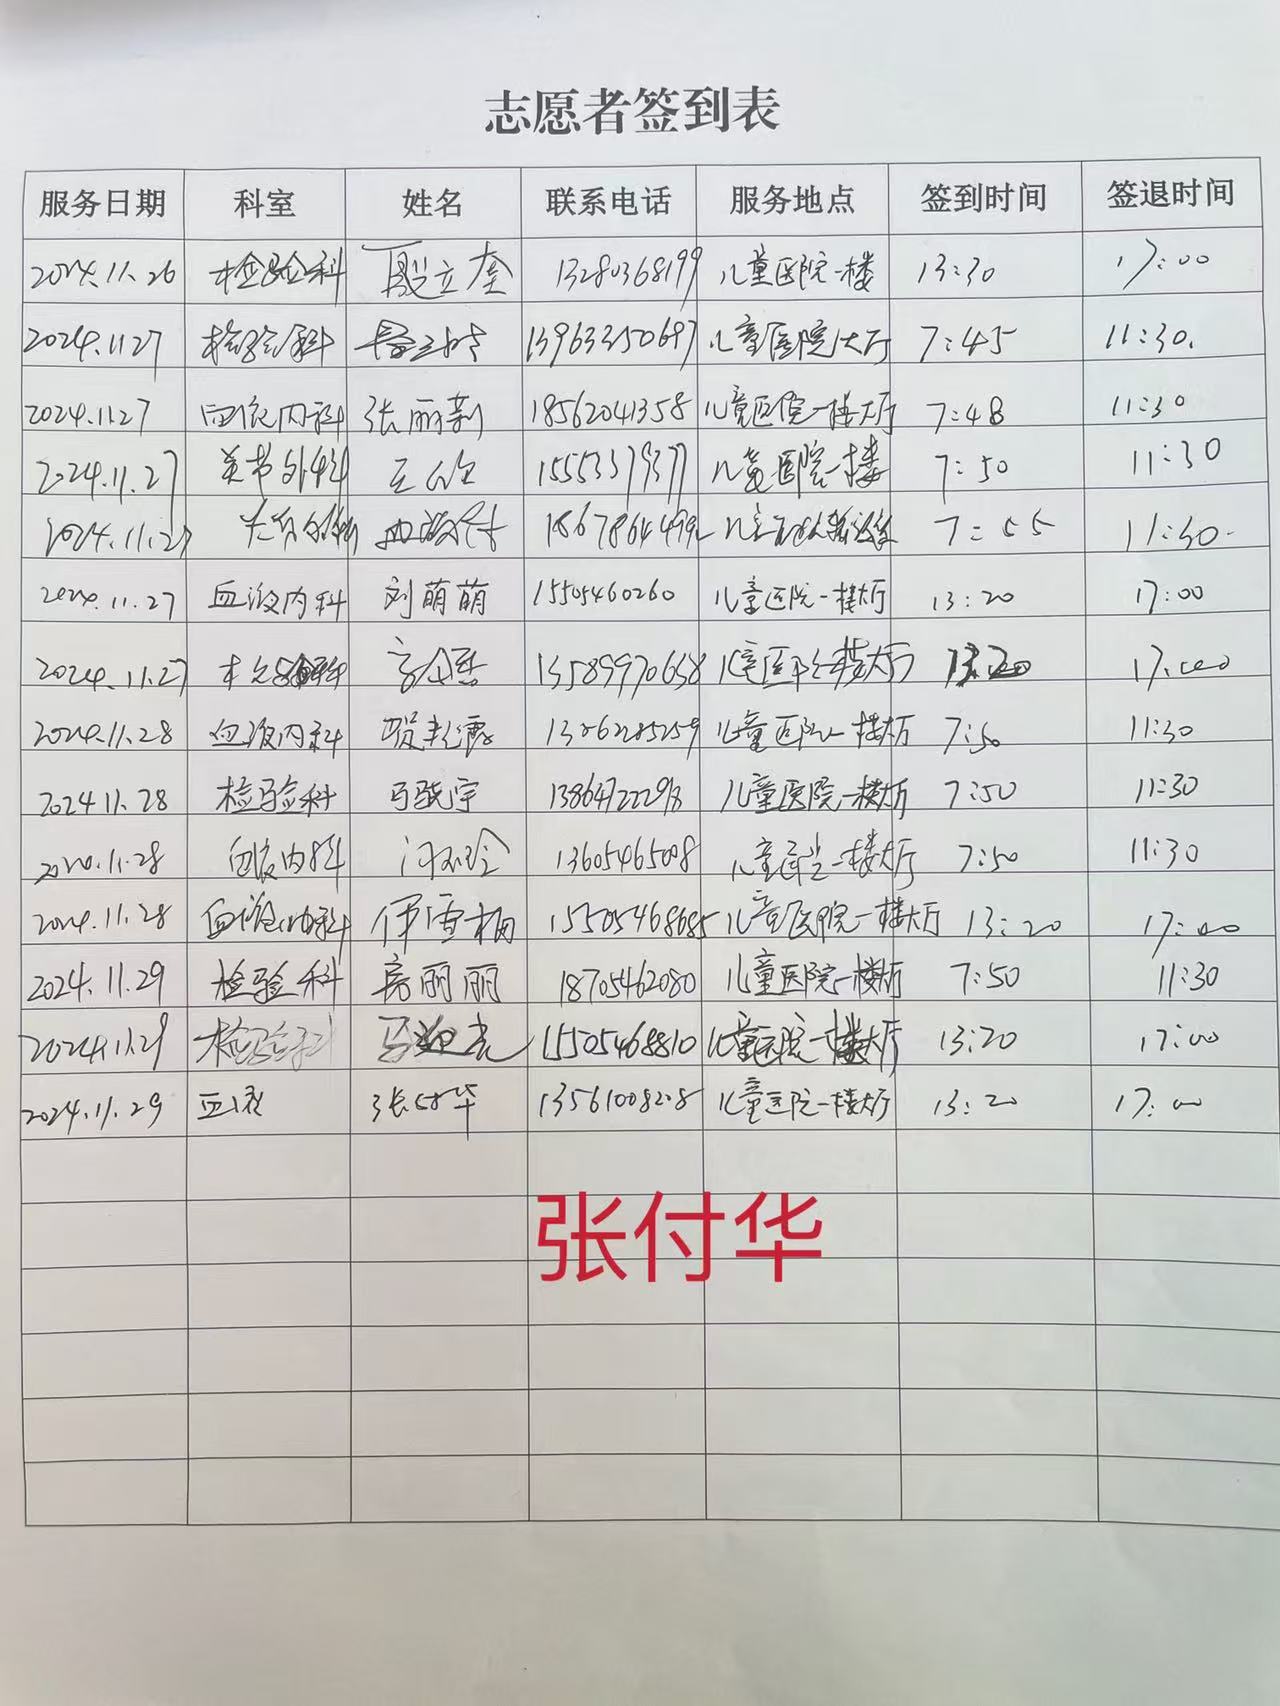 志愿者签到表
服务日期 科室 姓名 联系电话 服务地点 签到时间 签退时间
2024.11.26 检验科 殷立奎 13280368199 儿童医院一楼 13:30 17:00
2024.11.27 检验科 儿童医院大厅 7:45 11:30.
2024.11.27 血液内科 张丽莉 18562041358 儿童医院一楼大厅 7:48 11:30
2024.11.27 关节外科 15553379377 儿童医院一楼 7:50 11:30
2024.11.27 7:55 11:30.
2024.11.27 血液内科 刘萌萌 15505460260 儿童医院一楼大厅 13:20 17:00
2024.11.27 13589970638 儿童医院一楼大厅 13:20 17:00
2024.11.28 血液内科 儿童医院一楼大厅 7:50 11:30
2024.11.28 检验科 马晓宇 儿童医院一楼大厅 7:50 11:30
血液内科 13605465008 一楼大厅 7:50 11:30
2024.11.28 血液内科 伊雪梅 15505468685 儿童医院一楼大厅 13:20 17:00
2024.11.29 检验科 房丽丽 18705462080 儿童医院一楼大厅 7:50 11:30
2024.11.29 检验科 15505468810 儿童医院一楼大厅 13:20 17:00
2024.11.29 血液 张付华 13561008208 儿童医院一楼大厅 13:20 17:00
张付华